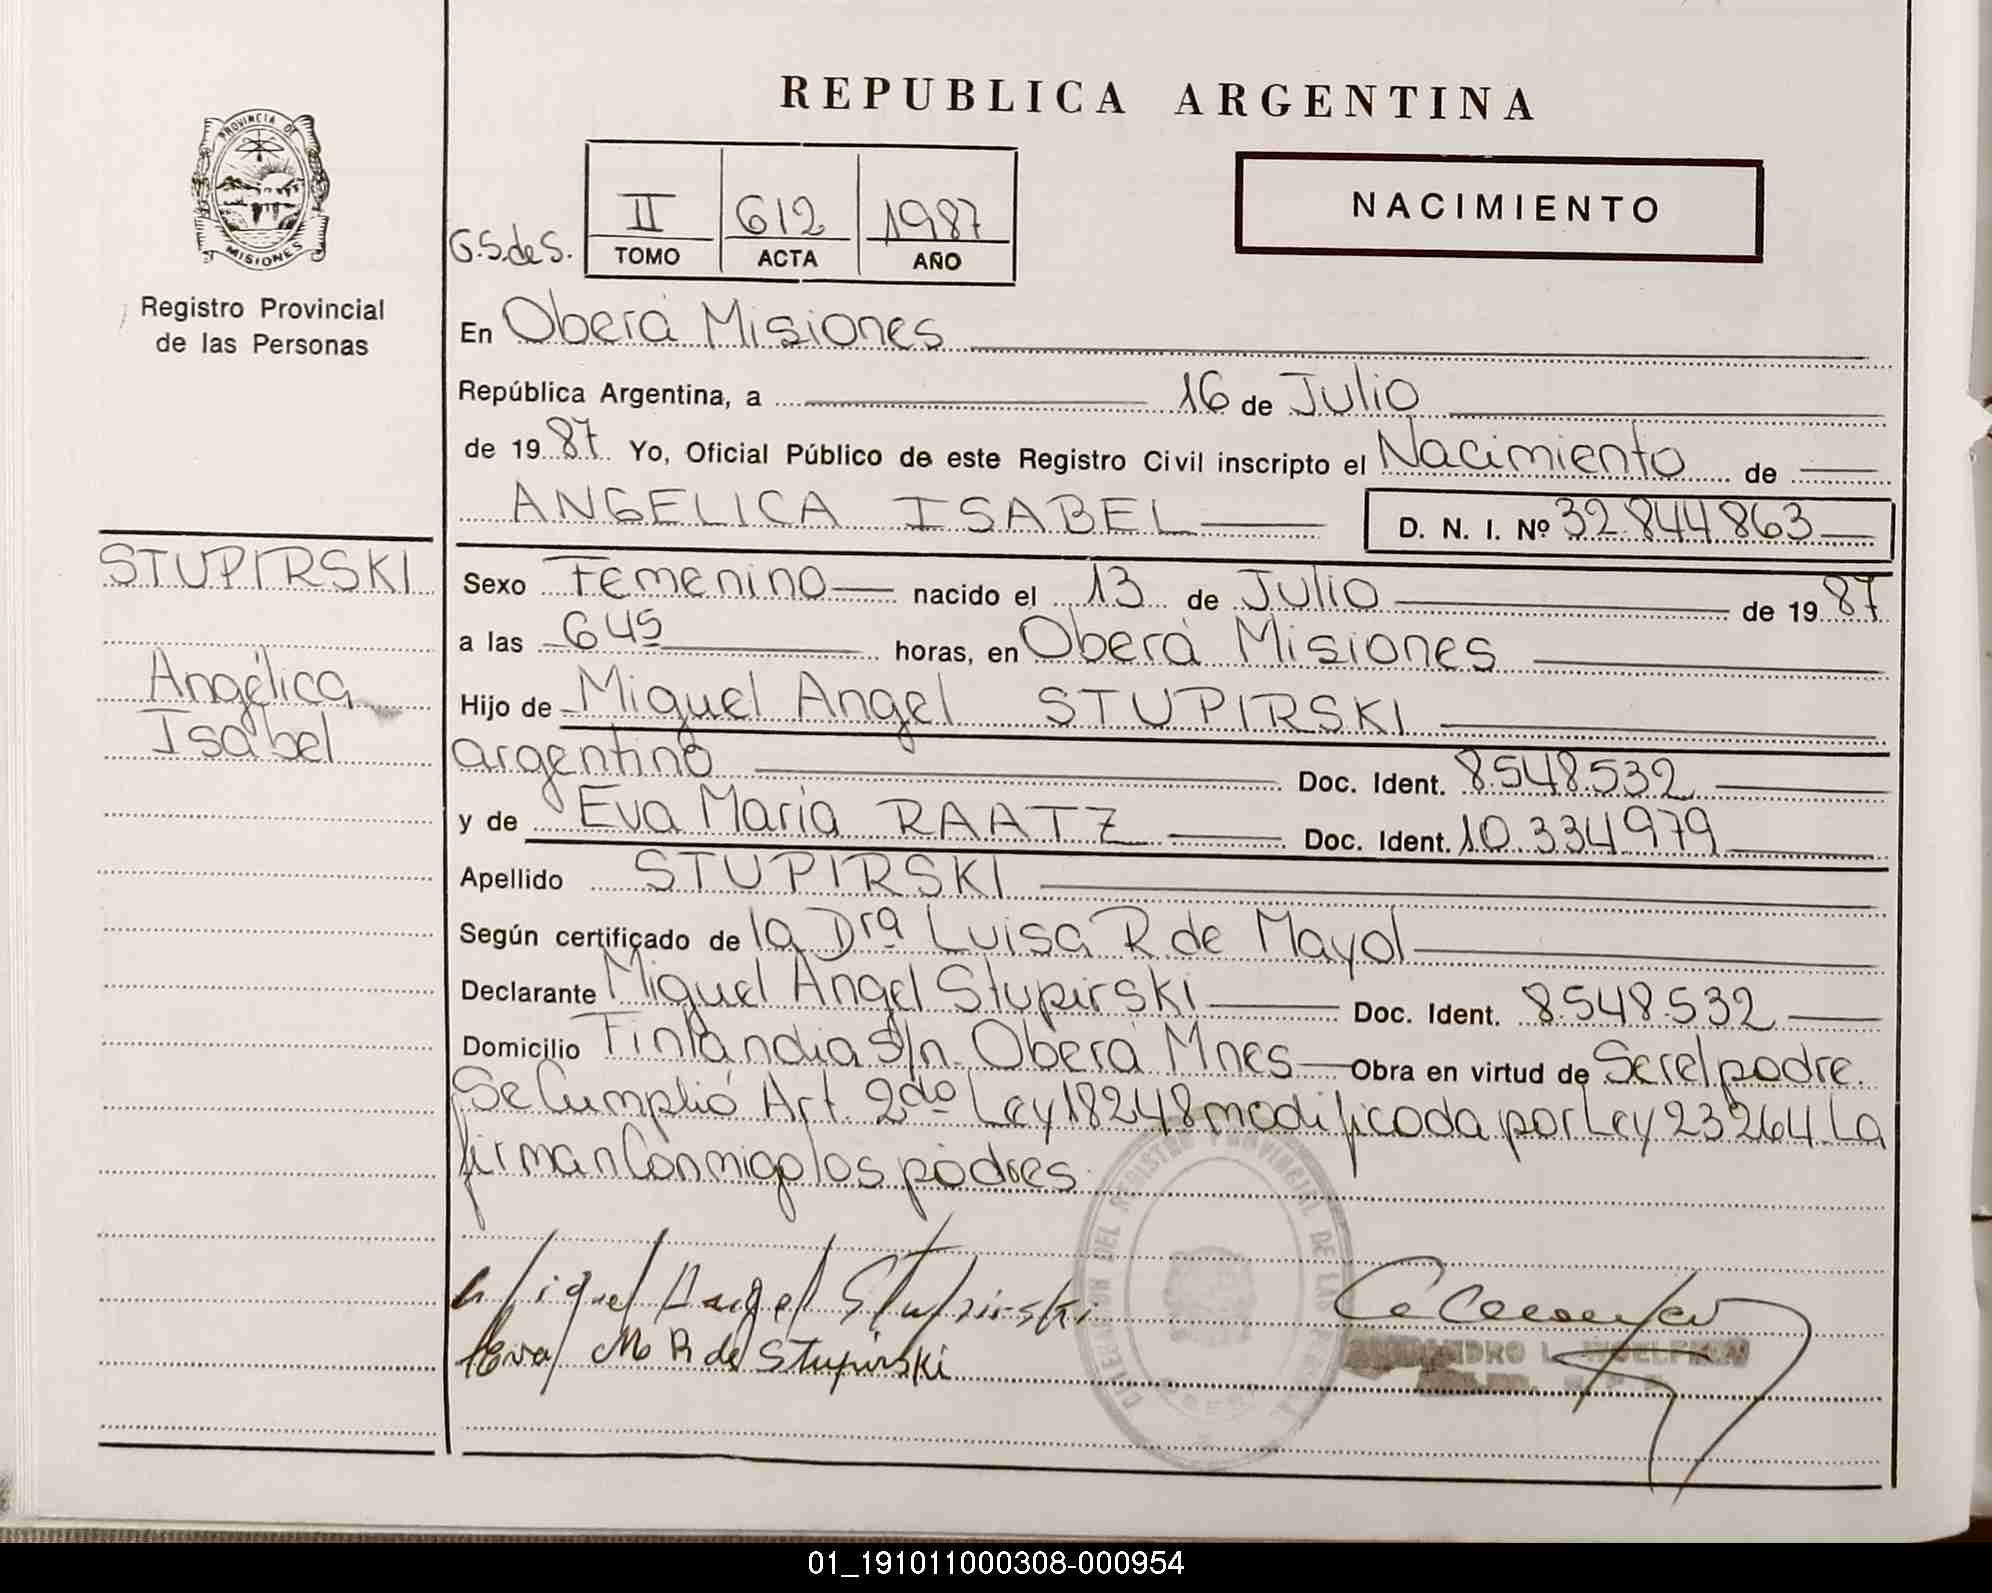 REPUBLICA ARGENTINA
PROVINCIA DE
MISIONES
Registro Provincial
de las Personas
G.S.de S.
II 612 1987
TOMO ACTA AÑO
NACIMIENTO
En Oberá Misiones
República Argentina, a 16 de Julio
de 1987 Yo, Oficial Público de este Registro Civil inscripto el Nacimiento de
ANGELICA ISABEL D. N. I. Nº 32.844.863
STUPIRSKI
Angélica
Isabel
Sexo Femenino nacido el 13 de Julio de 1987
a las 6 45 horas, en Oberá Misiones
Hijo de Miguel Angel STUPIRSKI
argentino Doc. Ident. 8.548.532
y de Eva María RAATZ Doc. Ident. 10.334.979
Apellido STUPIRSKI
Según certificado de la Dra Luisa R de Mayol
Declarante Miguel Angel Stupirski Doc. Ident. 8.548.532
Domicilio Finlandia S/n. Oberá Mnes Obra en virtud de Ser el padre.
Se Cumplió Art. 2do Ley 18248 modificada por Ley 23264 La
firman Conmigo los padres.
DEL REGISTRO PROVINCIAL DE LAS
Miguel Angel Stupirski
Eva M R de Stupirski
01_191011000308-000954